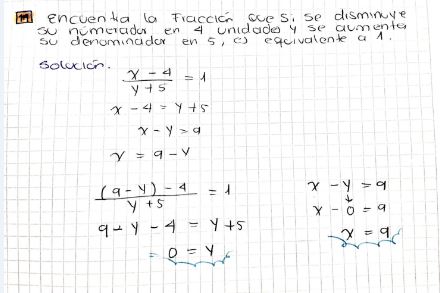 encuentra la Fracción que si se disminuye
su numerador en 4 unidades y se aumenta
su denominador en 5, es equivalente a 1.
Solución.
x - 4 / y + 5 = 1
x - 4 = y + 5
x - y = 9
x = 9 - y
(9 - y) - 4 / y + 5 = 1
9 - y - 4 = y + 5
= 0 = y
x - y = 9
↓
x - 0 = 9
x = 9